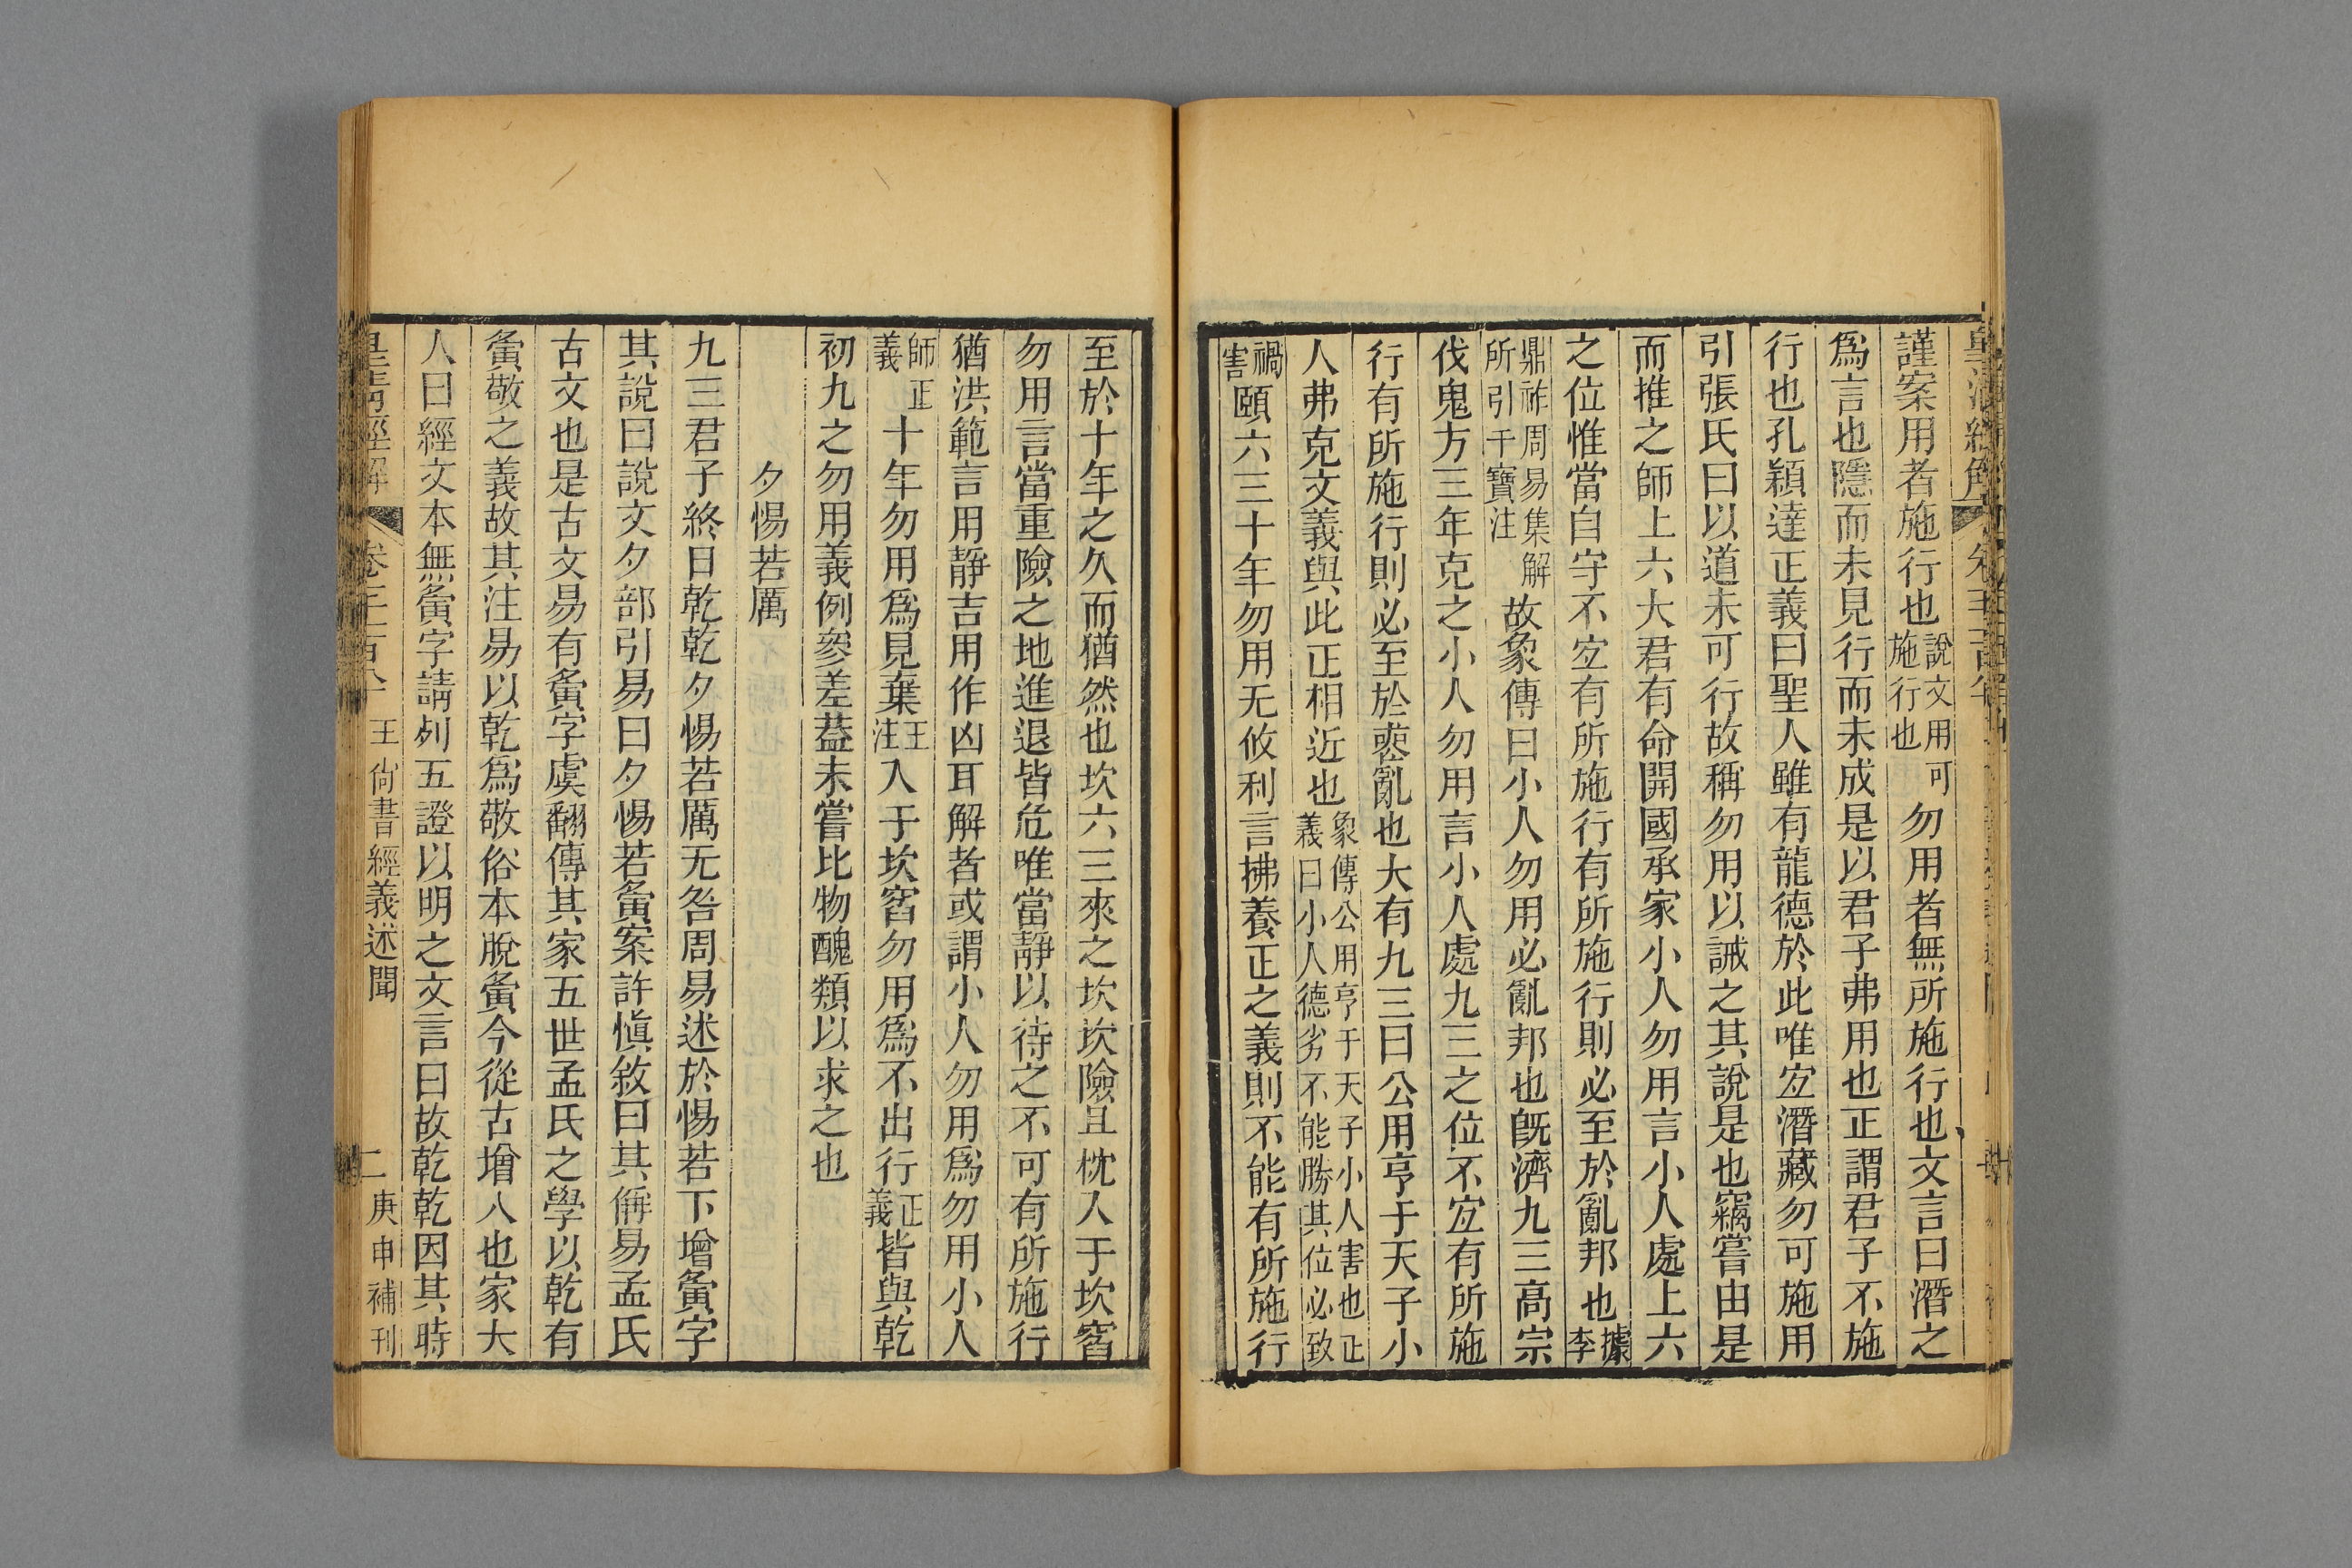 謹案用者施行也說文用可施行也勿用者無所施行也文言曰潛之
爲言也隱而未見行而未成是以君子弗用也正謂君子不施
行也孔穎達正義曰聖人雖有龍德於此唯宜潛藏勿可施用
引張氏曰以道未可行故稱勿用以誡之其說是也竊嘗由是
而推之師上六大君有命開國承家小人勿用言小人處上六
之位惟當自守不宜有所施行有所施行則必至於亂邦也據李
鼎祚周易集解所引干寶注故象傳曰小人勿用必亂邦也旣濟九三高宗
伐鬼方三年克之小人勿用言小人處九三之位不宜有所施
行有所施行則必至於喪亂也大有九三曰公用亨于天子小
人弗克文義與此正相近也象傳公用亨于天子小人害也正義曰小人德劣不能勝其位必致
禍害頤六三十年勿用无攸利言拂養正之義則不能有所施行
至於十年之久而猶然也坎六三來之坎坎險且枕入于坎窞
勿用言當重險之地進退皆危唯當靜以待之不可有所施行
猶洪範言用靜吉用作凶耳解者或謂小人勿用爲勿用小人
師正義十年勿用爲見棄王注入于坎窞勿用爲不出行正義皆與乾
初九之勿用義例參差葢未嘗比物醜類以求之也
夕惕若厲
九三君子終日乾乾夕惕若厲无咎周易述於惕若下增夤字
其說曰說文夕部引易曰夕惕若夤案許愼敘曰其偁易孟氏
古文也是古文易有夤字虞翻傳其家五世孟氏之學以乾有
夤敬之義故其注易以乾爲敬俗本脫夤今從古增入也家大
人曰經文本無夤字請列五證以明之文言曰故乾乾因其時
皇清經解 卷千一百八十 王尙書經義述聞 二 庚申補刊